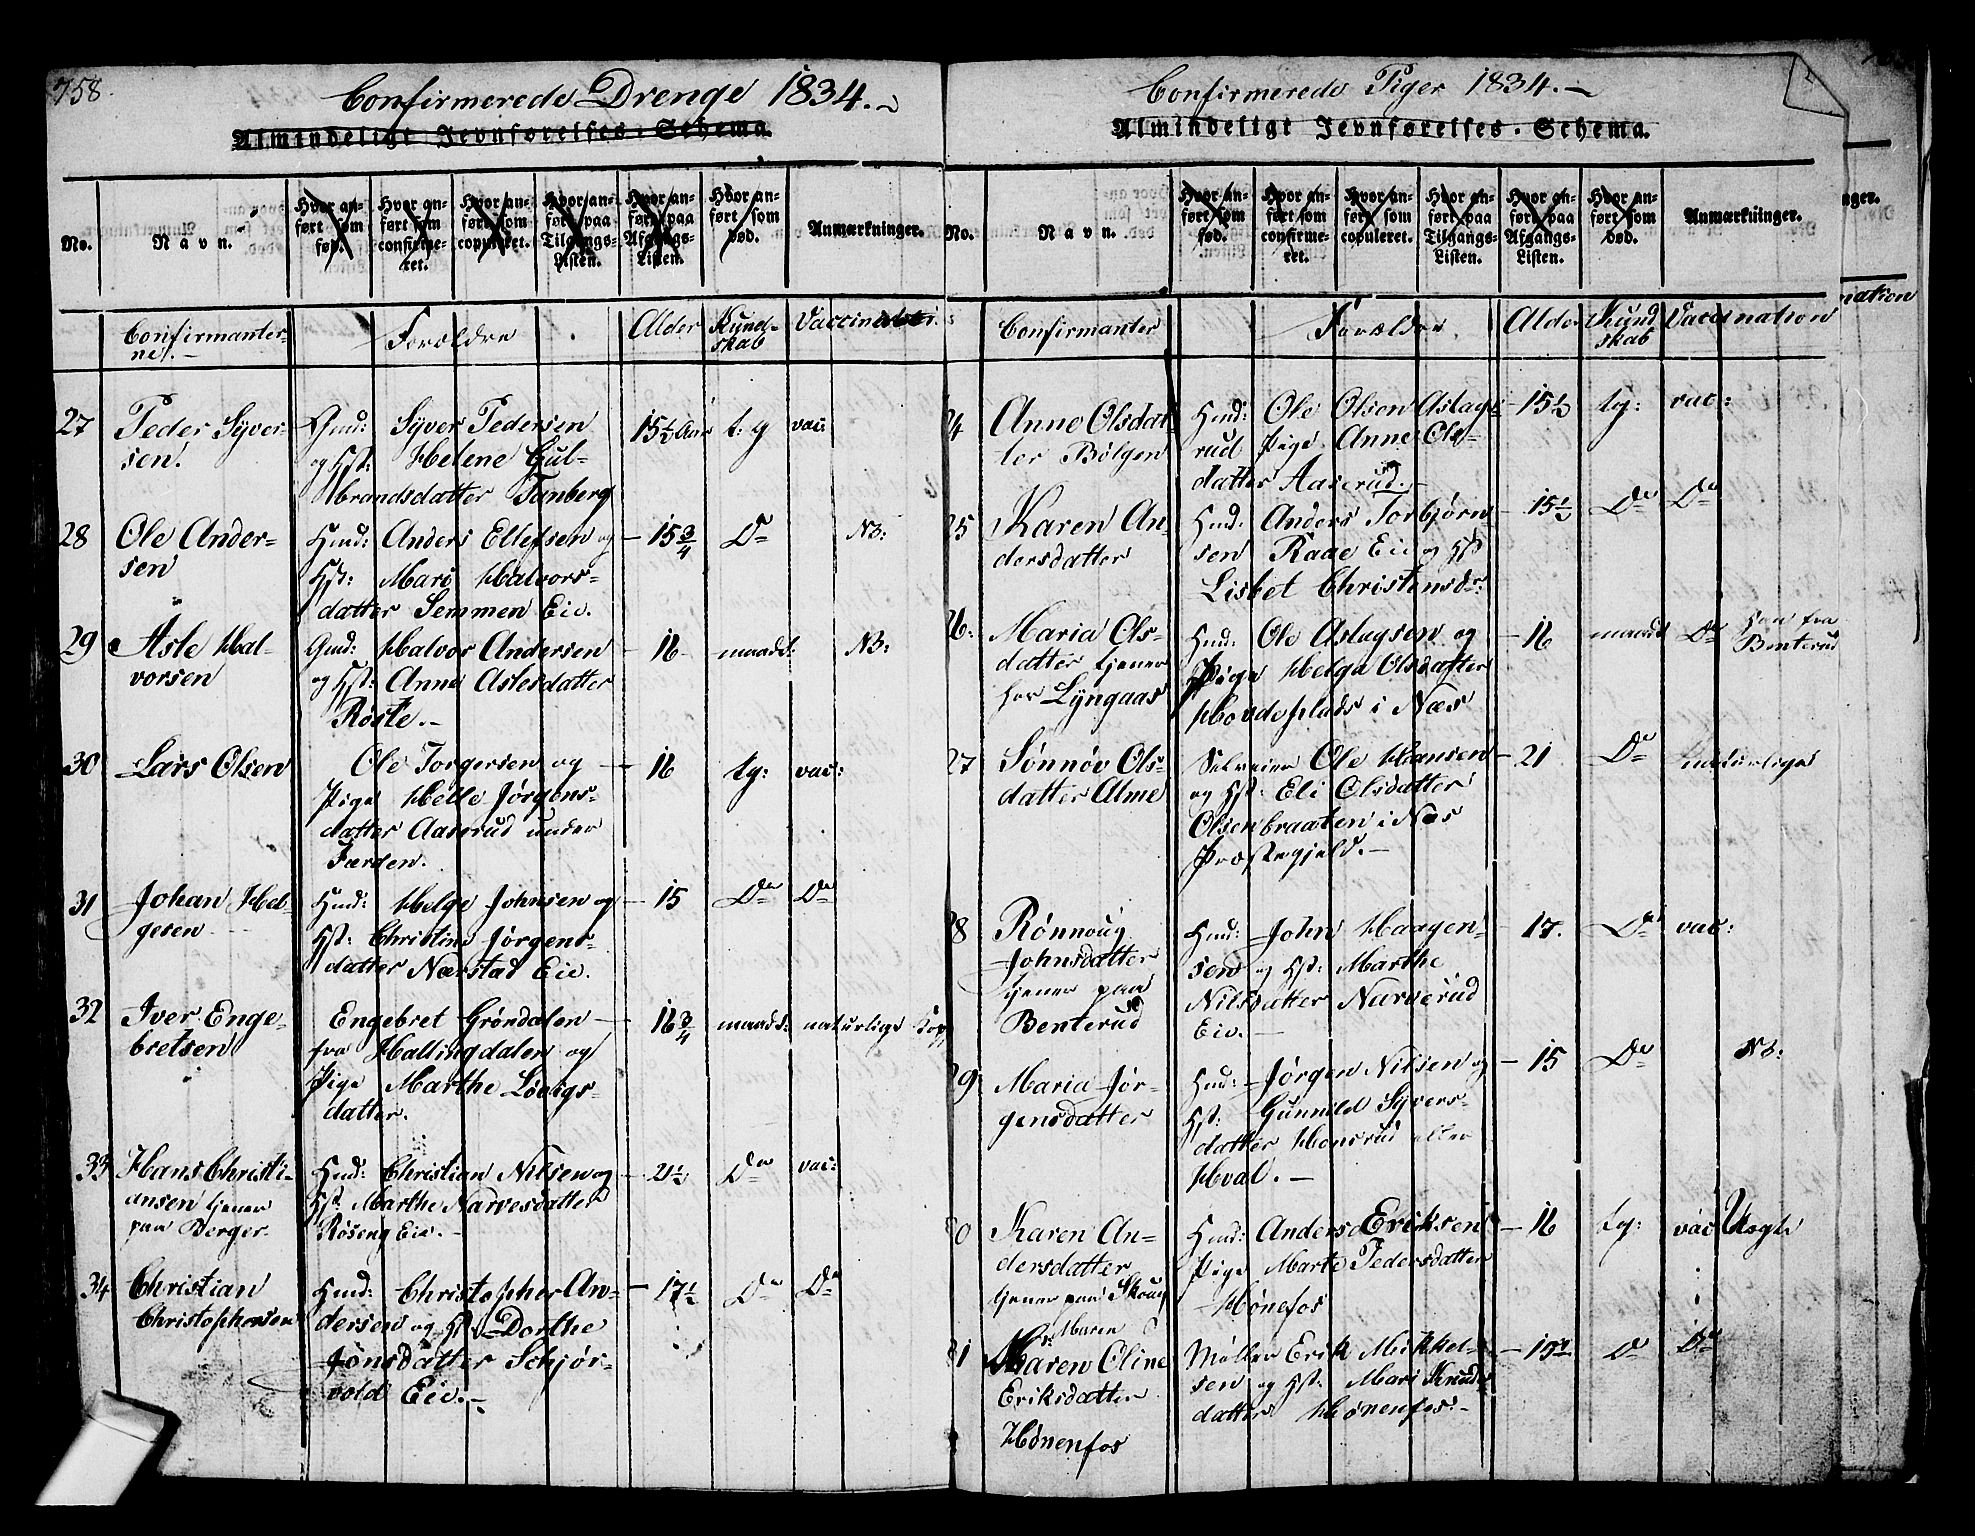 758.
Confirmerede Drenge 1834.
Almindeligt Jevnførelses-Schema.
No.
Navn.
Hvor anført som fød.
Hvor anført som confirmeret.
Hvor anført som copuleret.
Hvor anført paa Tilgangs-Listen.
Hvor anført paa Afgangs-Listen.
Hvor anført som død.
Anmærkninger.
Confirmanterne.
Forældre
Alder
Kundskab
27
Peder Syver-
sen.
Gmd: Syver Pedersen
og Hst: Helene Gul-
brandsdatter Tanberg
15½ Aar
t: g
vac:
28
Ole Ander-
sen
Hmd: Anders Ellefsen og
Hst: Mari Halvors-
datter Semmen Eie.
15¾
Do
NB:
29
Asle Hal-
vorsen
Gmd: Halvor Andersen
og Hst: Anne Aslesdatter
Røste.
16
maadl:
NB:
30
Lars Olsen
Ole Torgersen og
Pige Helle Jørgens-
datter Aaserud under
Færden.
16
tg:
vac:
31
Johan Hel-
gesen
Hmd: Helge Johnsen og
Hst: Christine Jørgens-
datter Nærstad Eie.
15
Do
Do
32
Iver Enge-
bretsen
Engebret Grøndalen
fra Hallingdalen og
Pige Marthe Løvigs-
datter.
16¾
maadl:
naturlige Kop
33
Hans Christi-
ansen tjener
paa Berger.
Hmd: Christian Nilsen og
Hst: Marthe Narvesdatter
Røseng Eie.
Do
vac:
34
Christian
Christophersen
Hmd: Christopher An-
dersen og Hst: Dorthe
Jønsdatter Schjør-
vold Eie.
17½
Do
Do
Confirmerede Piger 1834.
Almindeligt Jevnførelses-Schema.
No.
Navn.
Hvor anført som fød.
Hvor anført som confirmeret.
Hvor anført som copuleret.
Hvor anført paa Tilgangs-Listen.
Hvor anført paa Afgangs-Listen.
Hvor anført som død.
Anmærkninger.
Confirmanter
Forældre
Alder
Kundskab
Vaccination
24
Anne Olsdat-
ter Bølgen
Hmd: Ole Olsen Aslags-
rud Pige Anne Ols-
datter Aaserud.
15½
tg:
vac:
25
Karen An-
dersdatter
Hmd: Anders Torbjørn-
sen Raae Eie og Hst
Lisbet Christensdr:
15½
Do
Do
26:
Maria Ols-
datter tjener
hos Lyngaas
Hmd: Ole Aslagsen og
Pige Helge Olsdatter
Hovdeplads i Næs
16
maadl
Do
fra
Benterud
27
Sønnøv Ols-
datter Alme
Selveier Ole Hansen
og Hst: Eli Olsdatter
Olsenbraaten i Næs
Præstegjeld.
21
Do
naturlige
28
Rønnoug
Johnsdatter
tjener paa
Benterud
Hmd: John Haagen-
sen og Hst: Marthe
Nilsdatter Narverud
Eie.
17.
Do
vac:
29
Maria Jør-
gensdatter
Hmd: Jørgen Nilsen og
Hst: Gunnild Syvers-
datter Honsrud eller
Hval.
15
Do
NB:
30
Karen An-
dersdatter
tjener paa Skoug
Hmd: Anders Eriksen
Pige Marte Pedersdatter
Hønefos
16
tg:
vac
31
Maren
Karen Oline
Eriksdatter
Hønenfos
Møller Erik Mikkel-
sen og Hst: Mari Knuds-
datter Hønenfos.
Do
Do